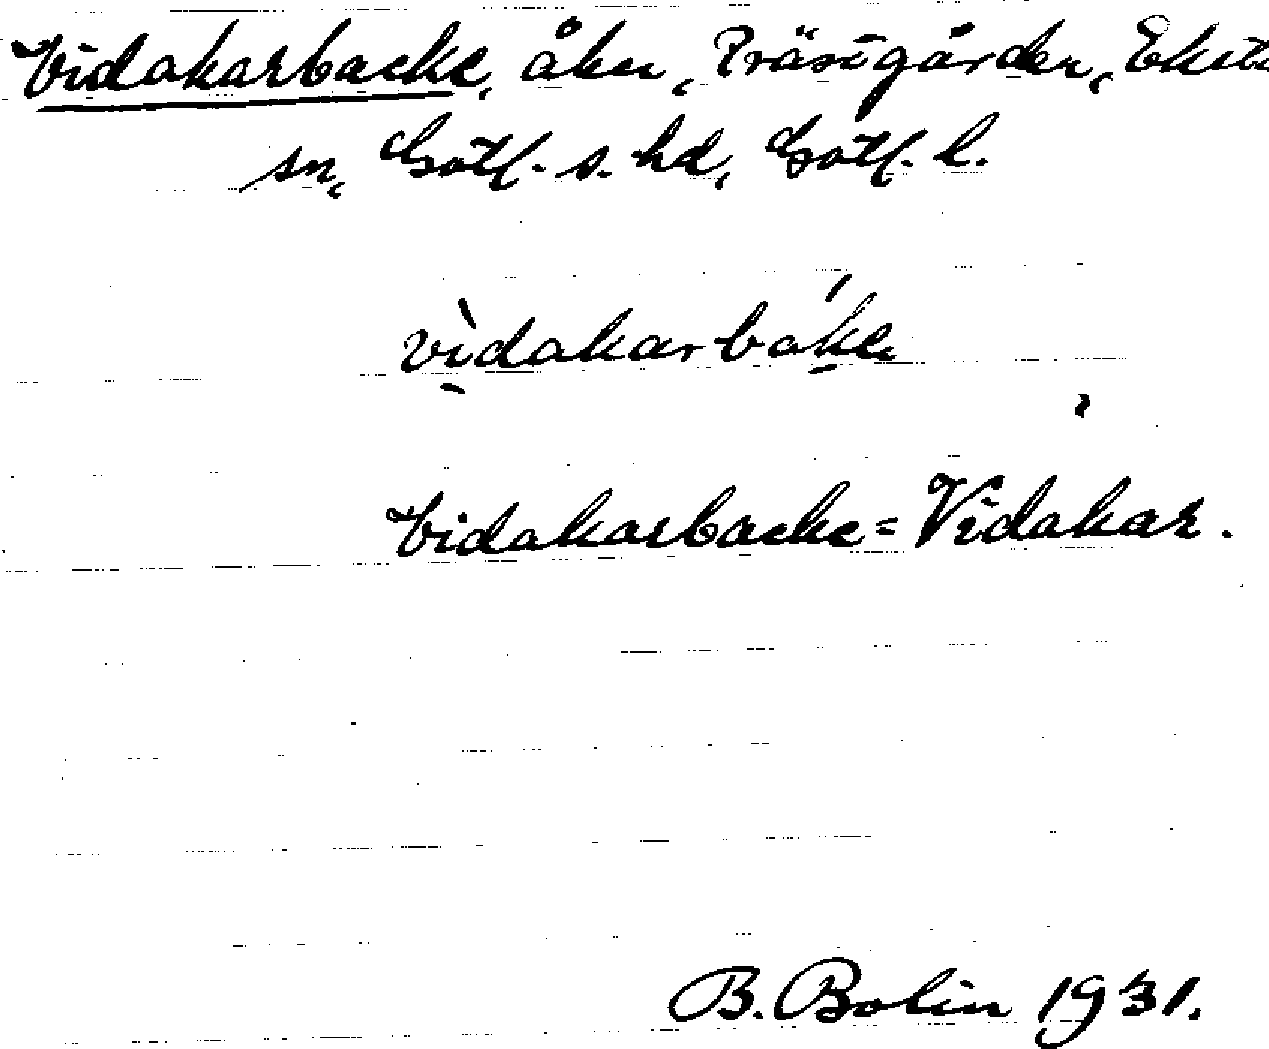 Vidakarbacke, åker, Prästgården, Eksta
sn, Gotl. s. hd, Gotl. l.
vìdakarbák
Vidakarbacke = Vidakar.
B. Bolin 1931.